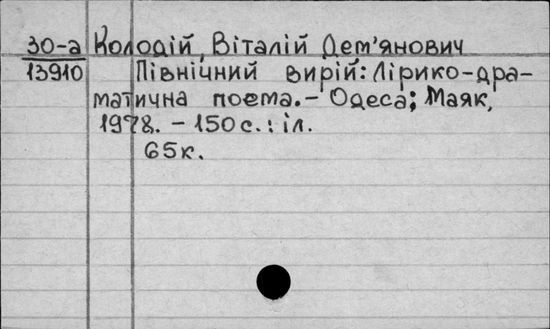 30-а Колодій, Віталій Дем'янович
13910 Північний вирій: Лірико-дра-
матична поема. - Одеса; Маяк,
1978. - 150 с. : іл.
65к.